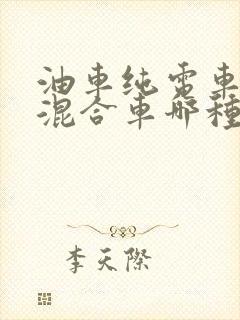 油車纯電車
混合車哪種
李天際